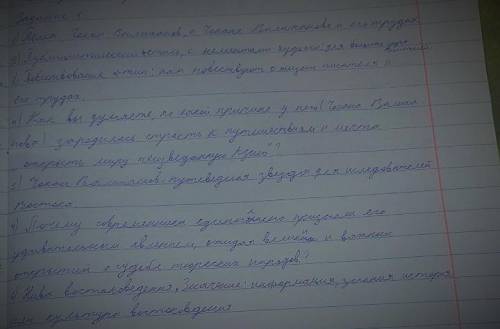 Задание 1.
1) Тема: Чокан Валиханов, о Чокане Валиханове и его трудах
2) Публицистический стиль, с элементами
повествования и тип: нам повествуют о жизни писателя и
его трудах.
а) Как вы думаете, по какой причине у него (Чокана Валиха-
нова) зародилась страсть к путешествиям и мечта
открыть миру неизведанную Азию?
Чокан Валиханов - путеводная звезда для исследователей
Востока.
Почему современники единогласно признали его
удивительным явлением, ожидая великих и важных
открытий о судьбе тюркских народов?
Нива востоковедения, Значение: информация, учения
или культура востоковедения